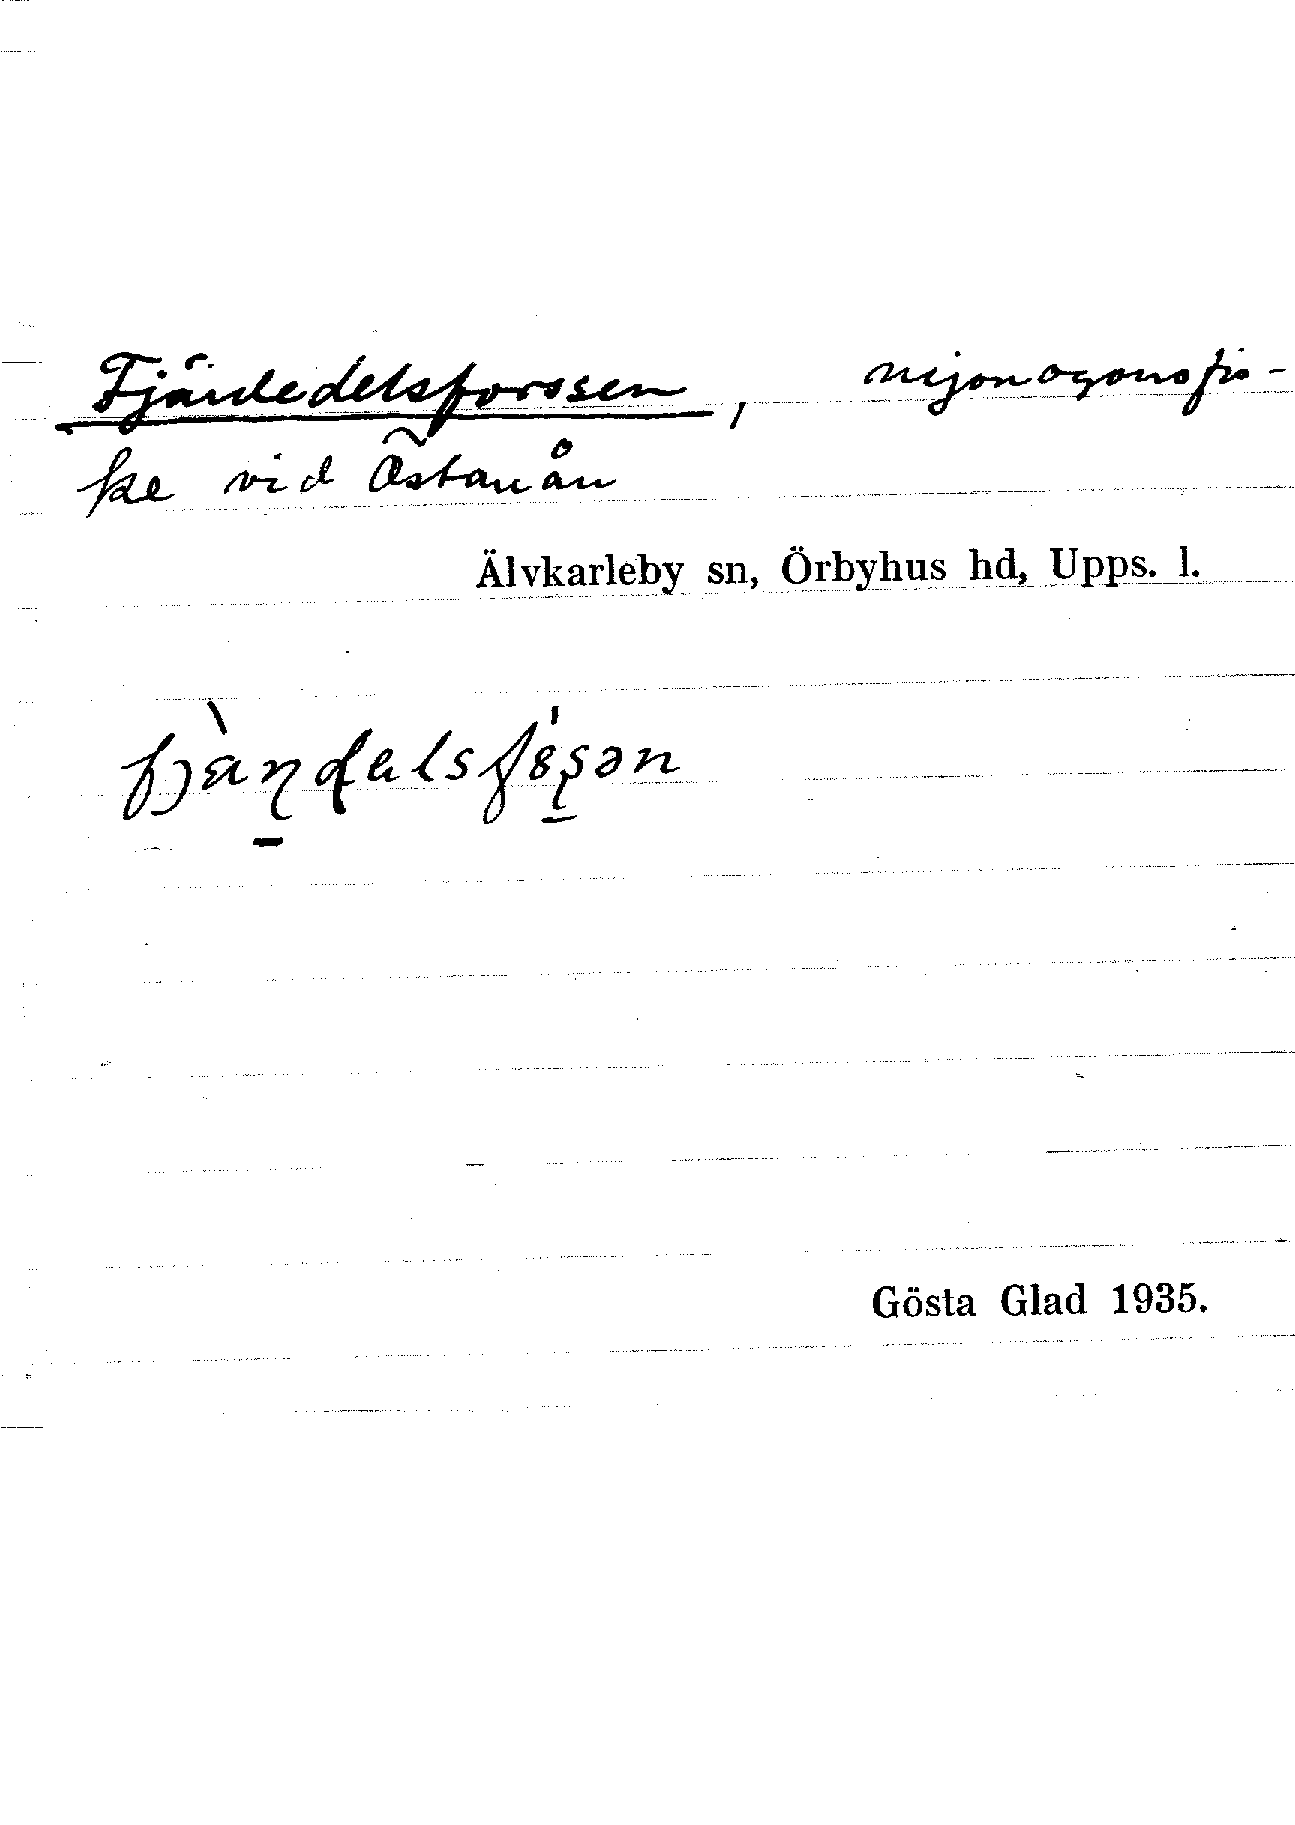 Fjärdedelsforssen, nejonögonsfis-
ke vid Östanån
Älvkarleby sn, Örbyhus hd, Upps. l.
Gösta Glad 1935.